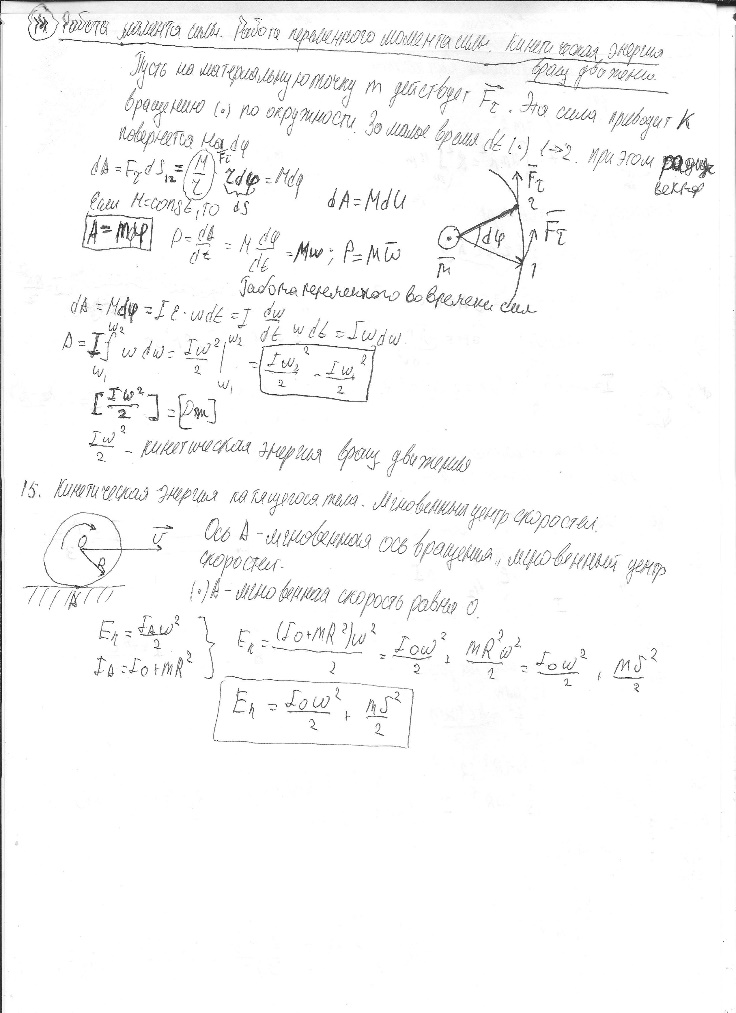 Работа момента силы. Работа переменного момента силы. Кинетическая энергия
вращ движения.
Пусть на материальную точку m действует F⃗τ. Эта сила приводит к
вращению (·) по окружности. За малое время dt (·) 1→2. при этом радиус
вектор
повернется на dφ
dA = Fτ dS₁₂ = (M/r) r dφ = Mdφ
Fτ dS
Если M=const, то dA = Mdφ
A = Mφ P = dA/dt = M dφ/dt = Mω; P = M ω̄
F̄τ
2
F̄τ
dφ
M̄
1
Работа переменного во времени сил
dA = Mdφ = Iε·ωdt = I dω/dt ωdt = Iωdω
A = I ∫ω₁^ω₂ ω dω = Iω²/2 |ω₁^ω₂ = Iω₂²/2 - Iω₁²/2
[Iω²/2] = [Дж]
Iω²/2 - кинетическая энергия вращ движения
15. Кинетическая энергия катящегося тела. Мгновенный центр скоростей.
O R v⃗ A
Ось A - мгновенная ось вращения, мгновенный центр
скоростей.
(·) A - мгновенная скорость равна 0.
Eк = I_Aω²/2
I_A = I₀ + mR²
Eк = (I₀+mR²)ω²/2 = I₀ω²/2 + mR²ω²/2 = I₀ω²/2 + mv²/2
Eк = I₀ω²/2 + mv²/2